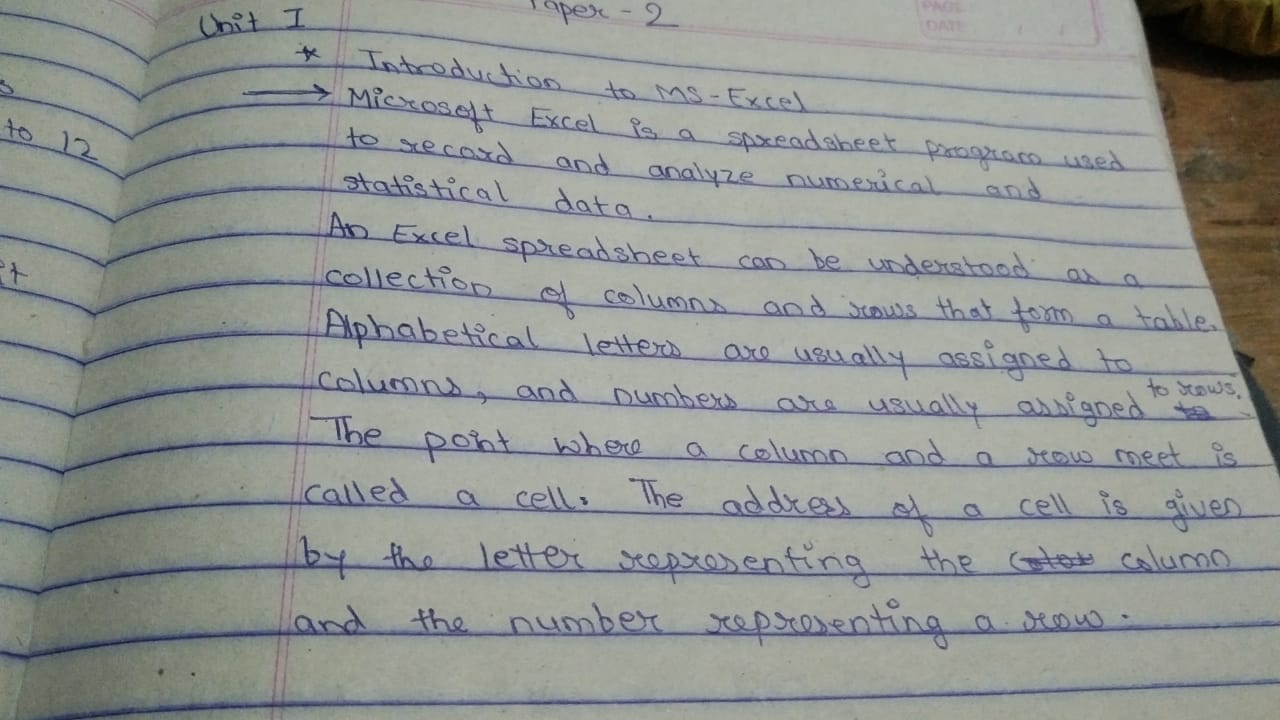 Paper - 2
PAGE
DATE
Unit I
* Introduction to MS-Excel
→ Microsoft Excel is a spreadsheet program used
to record and analyze numerical and
statistical data.
An Excel spreadsheet can be understood as a
collection of columns and rows that form a table.
Alphabetical letters are usually assigned to
columns, and numbers are usually assigned to rows.
The point where a column and a row meet is
called a cell. The address of a cell is given
by the letter representing the column
and the number representing a row.
to 12